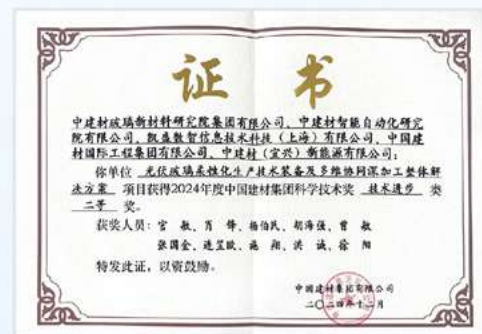 证 书
中建材玻璃新材料研究院集团有限公司、中建材智能自动化研究
院有限公司、凯盛数智信息技术科技（上海）有限公司、中国建
材国际工程集团有限公司、中建材（宜兴）新能源有限公司：
你单位 光伏玻璃柔性化生产技术装备及多维协同深加工整体解
决方案 项目获得2024年度中国建材集团科学技术奖 技术进步 类
二等 奖。
获奖人员：官 敏、肖 锋、杨伯民、胡海强、曾 敏
张国金、连笠歆、施 翔、洪 诚、徐 阳
特发此证，以资鼓励。
中国建材集团有限公司
二〇二四年十二月